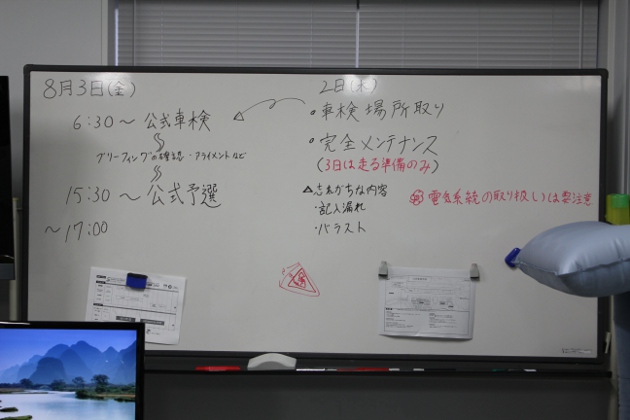 8月3日(金)
6:30～公式車検
ブリーフィングの確認・アライメントなど
15:30～公式予選
～17:00
2日(木)
・車検場所取り
・完全メンテナンス
(3日は走る準備のみ)
△忘れがちな内容
・記入漏れ
・バラスト
電気系統の取り扱いは要注意